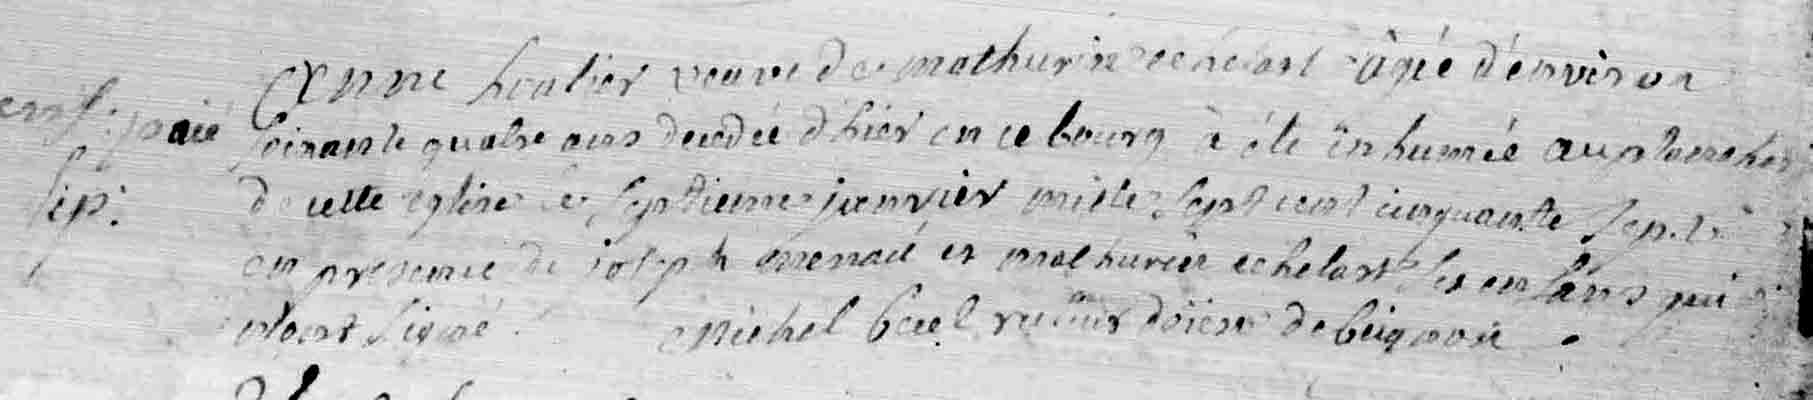 Anne houlier veuve de mathurin echelart âgée d'environ
paié soixante quatre ans decedée d'hier en ce bourg à été inhumée au
de cette eglise le septieme janvier mille sept cent cinquante sept
en presence de joseph et mathurin echelart ses enfans qui
n'ont signé. Michel doien de beignon.